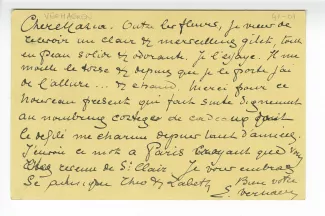 VERHAEREN
Chère Maria. Outre les fleurs, je viens de
recevoir un clair & merveilleux gilet, tout
en peau solide & odorante. Je l'essaye. Il me
moule le torse & depuis que je le porte j'ai
de l'allure... & chaud. Merci pour ce
nouveau présent qui fait suite dignement
au nombreux cortège de cadeaux dont
le défilé me charme depuis tant d'années.
J'envoie ce mot à Paris croyant que vous
êtes revenue de St Clair. Je vous embrasse
ainsi que Théo & Bien vôtre
E. Verhaeren